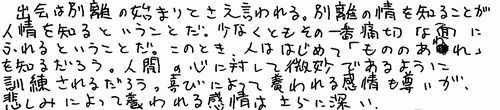 出会は別離の始まりとさえ言われる。別離の情を知ることが
人情を知るということだ。少なくともその一番痛切な面に
ふれるということだ。このとき、人ははじめて「もののあはれ」
を知るだろう。人間の心に対して微妙であるように
訓練されるだろう。喜びによって養われる感情も尊いが、
悲しみによって養われる感情はさらに深い.